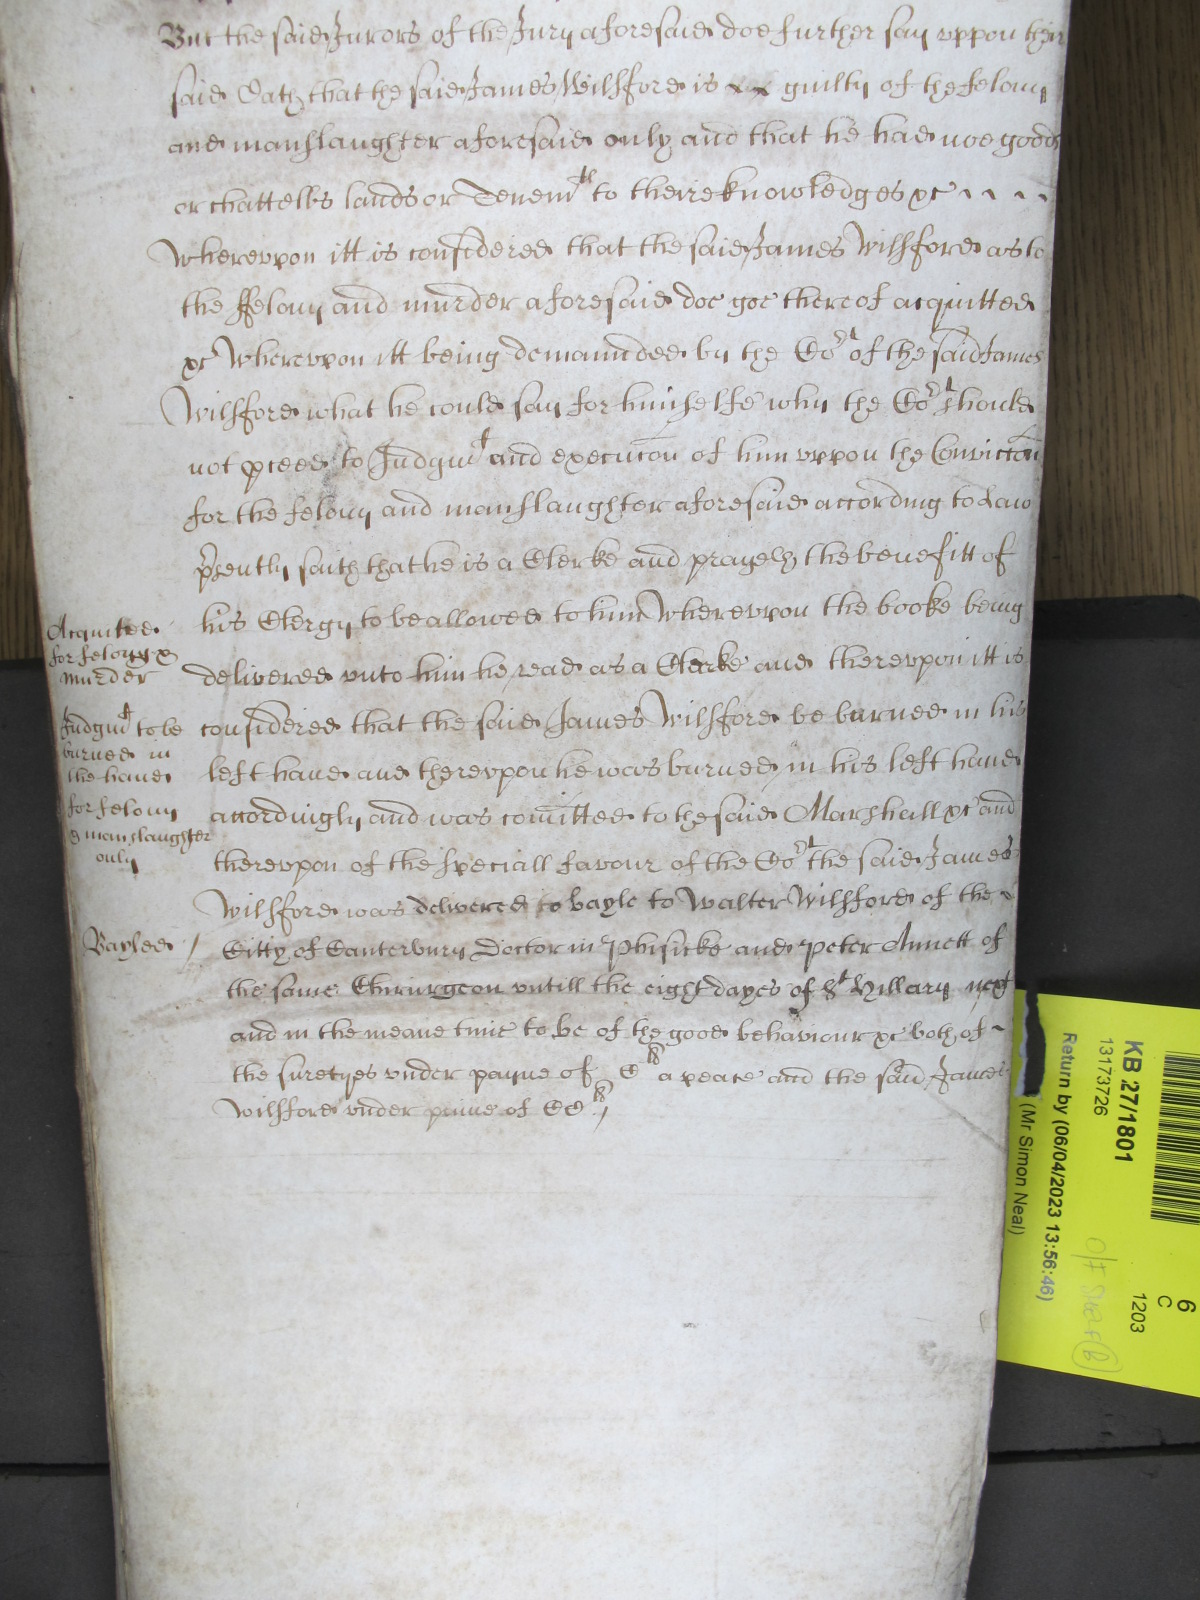 But the said Jurors of the Jury aforesaid doe further say vppon their
said Oath that the said James Wilsford is guilty of the felony
and manslaughter aforesaid only and that he had noe goods
or chattells lands or Tenemts to theire knowledges &c
Wherevpon itt is considered that the said James Wilsford as to
the ffelony and murder aforesaid doe goe thereof acquitted
&c Wherevpon itt being demannded by the Cort of the said James
Wilsford what he could say for himselfe why the Cort should
not pceed to Judgmt and execucon of him vppon the Conviccon
for the felony and manslaughter aforesaid according to Law
psently saith that he is a Clerke and prayeth the benefitt of
his Clergy to be allowed to him Wherevpon the booke being
delivered vnto him he read as a Clerke and therevpon itt is
considered that the said James Wilsford be burned in his
left hand and therevpon he was burned in his left hand
accordingly and was comitted to the said Marshall &c and
therevpon of the speciall favour of the Cort the said James
Wilsford was delivered to bayle to Walter Wilsford of the
Citty of Canterbury Doctor in Phisicke and Peter Annett of
the same Chirurgeon vntill the eight dayes of St Hillary next
and in the meane time to be of the good behaviour &c both of
the suretyes vnder payne of C li a peace and the said James
Wilsford vnder paine of CC li
Acquitted
for felony &
murder
Judgmt to be
burned in
the hand
for felony
& manslaughter
only
Bayled
KB 27/1801
13173726
Return by (06/04/2023 13:56:46)
(Mr Simon Neal)
6
C
1203